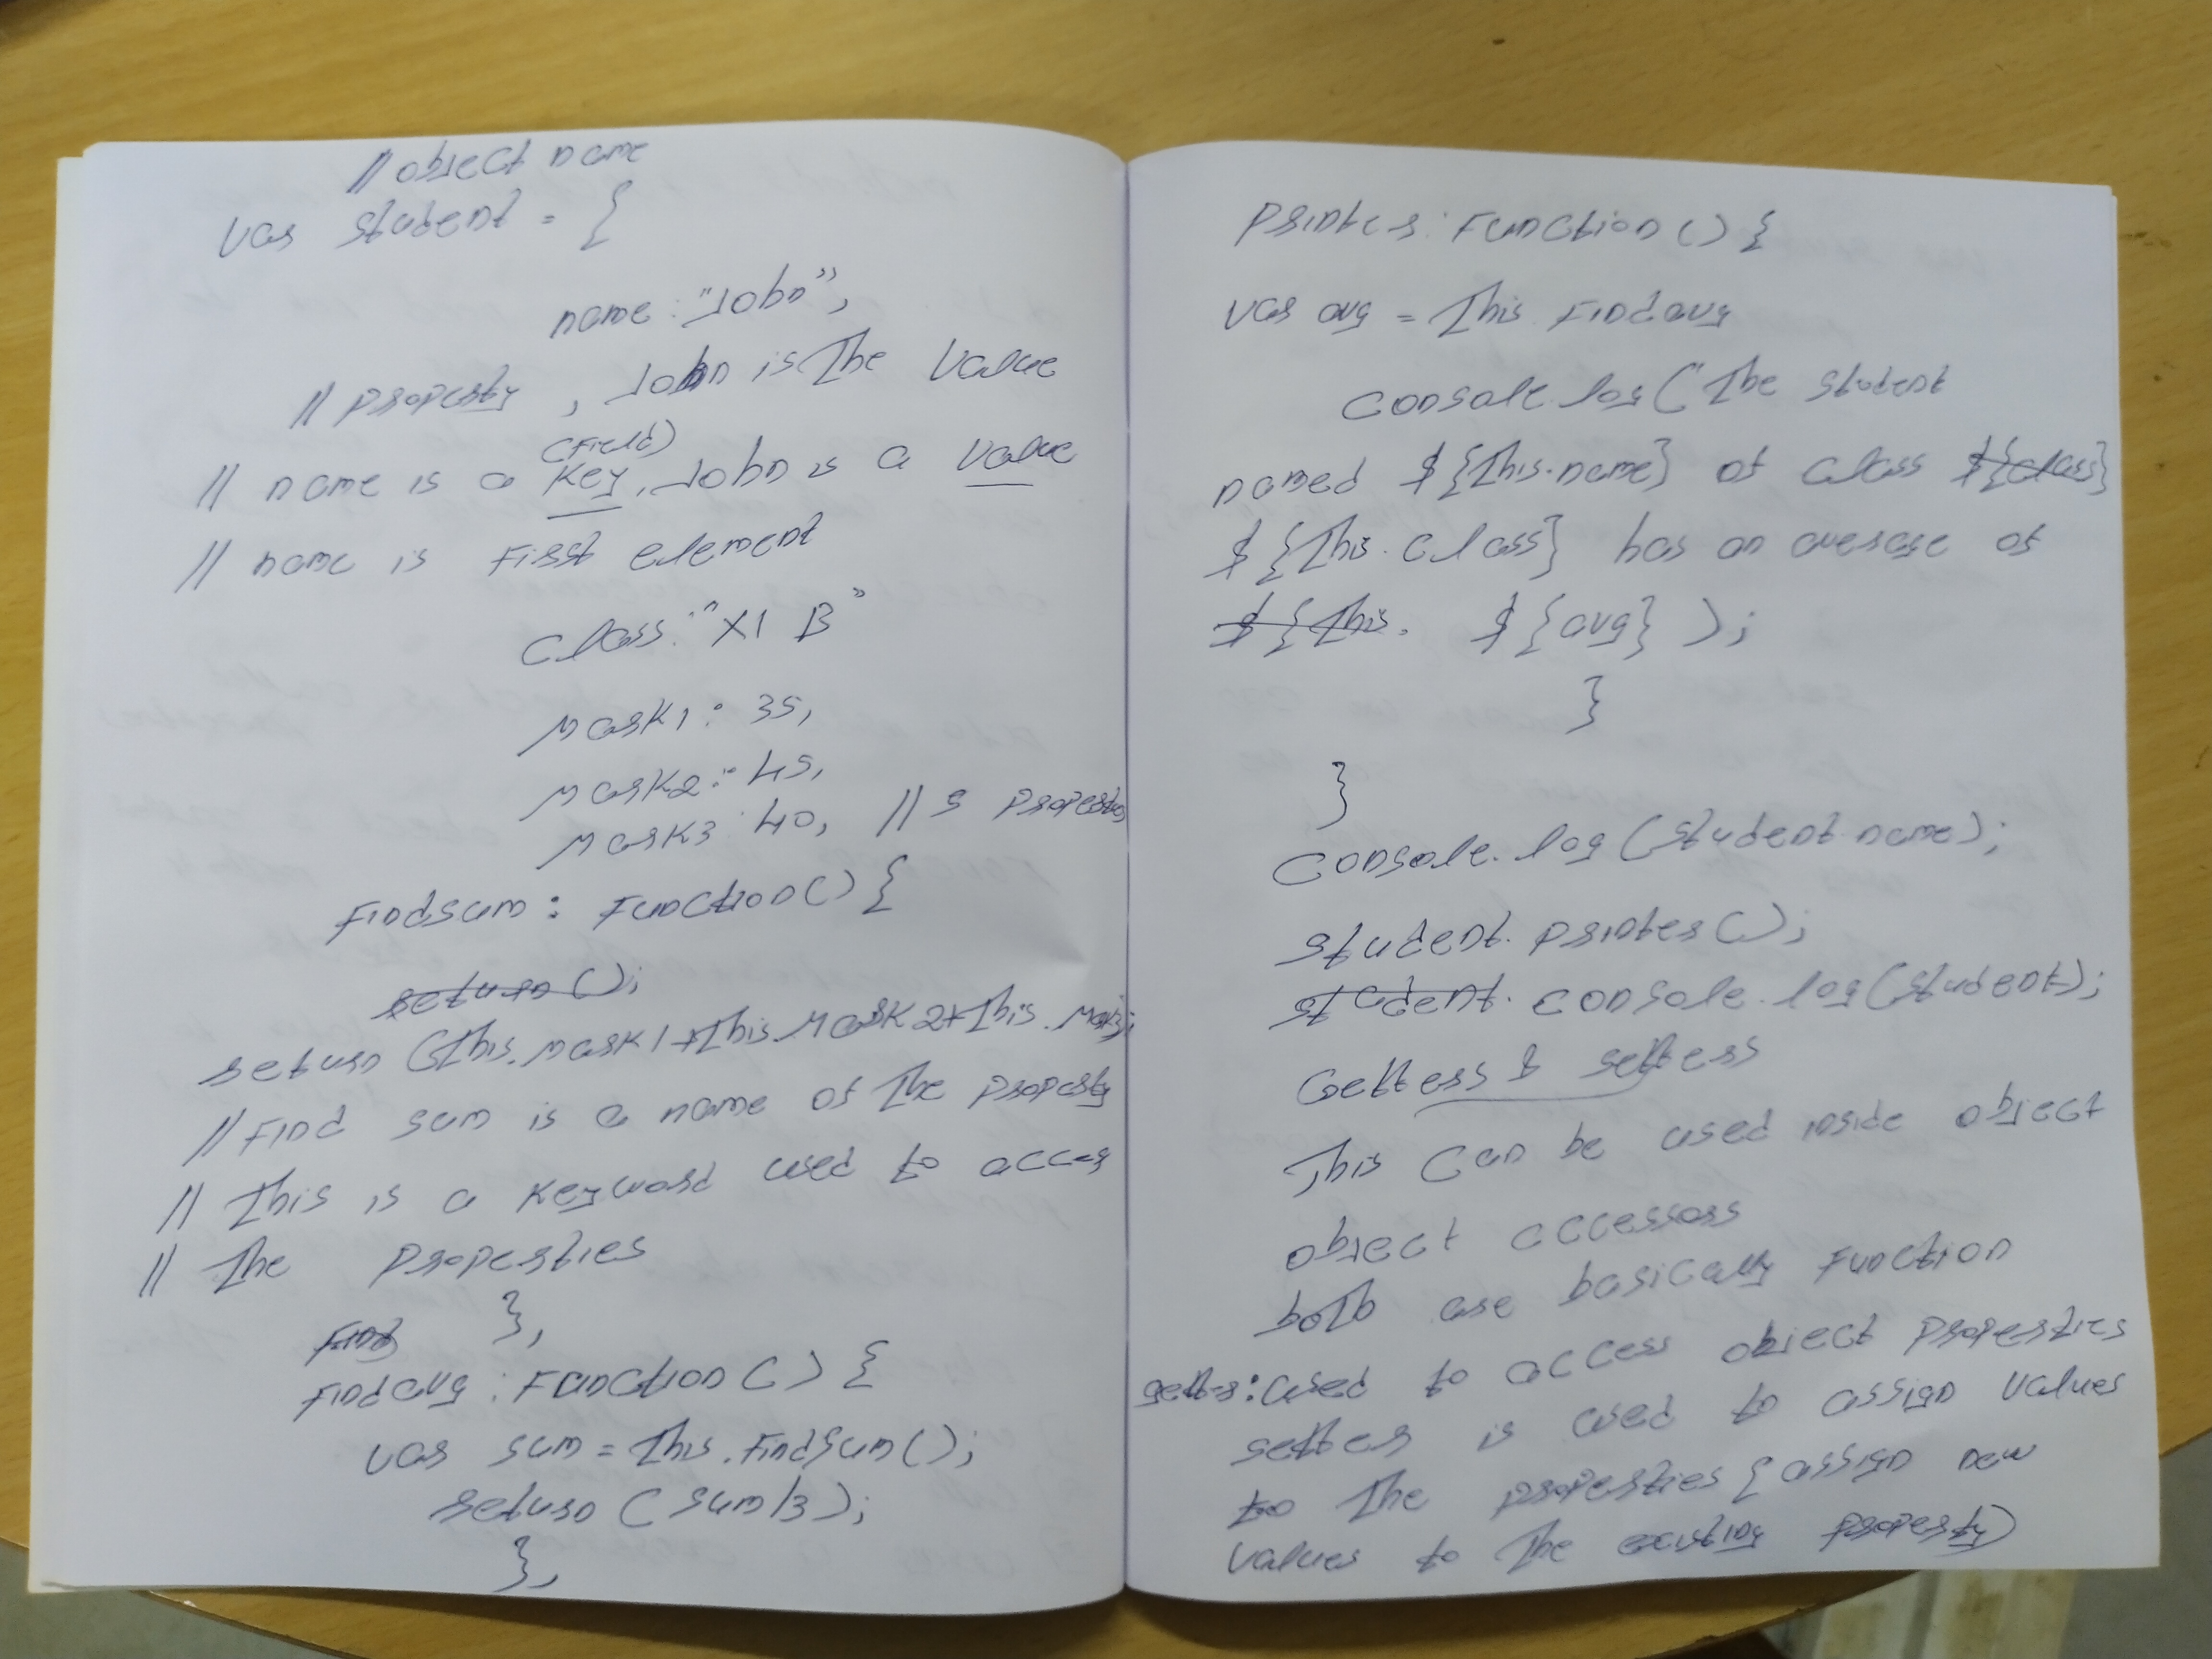 // object name
var student = {
name : "John",
// property , John is the value
(Field)
// name is a key, John is a value
// name is First element
class : "XI B"
Mark1 : 35,
Mark2 : 45,
Mark3 : 40, // 5 properties
Findsum : Function() {
return ();
return (this.Mark1+this.Mark2+this.Mark3);
// Find sum is a name of the property
// This is a keyword used to access
// the properties
},
Find
Findavg : Function() {
var sum = this.Findsum();
return (sum/3);
},
printer : Function() {
var avg = this Findavg
console.log("The student
named ${this.name} of class ${class}
${this.class} has an average of
${this. ${avg} );
}
}
console.log(student.name);
student.printer();
student. console.log(student);
Getters & setters
This can be used inside object
object accessors
both are basically Function
getter : used to access object properties
setter is used to assign values
to the properties { assign new
values to the existing property)